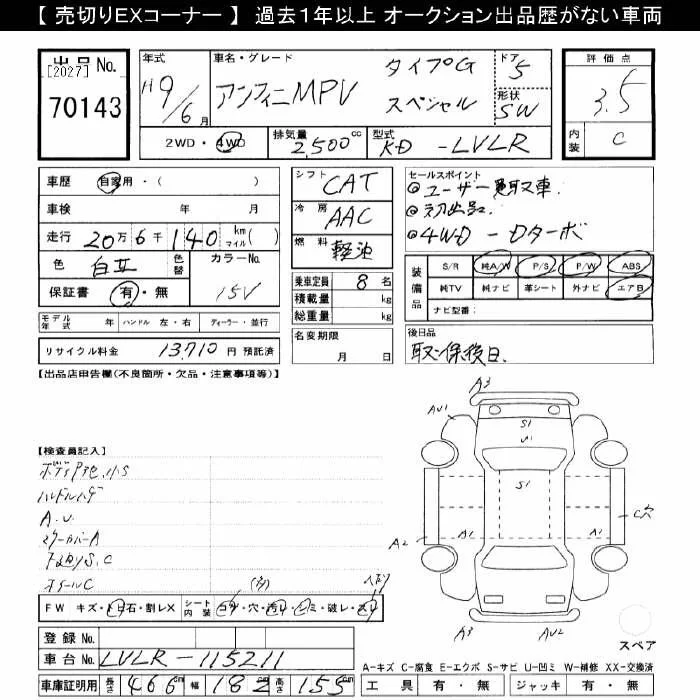 【 売切りEXコーナー 】 過去1年以上 オークション出品歴がない車両
出品 No.
[2027]
70143
年式
H9/6月
車名・グレード
アンフィニMPV
タイプG
スペシャル
ドア
5
形状
SW
評価点
3.5
内装
C
2WD・4WD
排気量
2,500cc
型式
KD-LVLR
車歴 自家用・( )
車検 年 月
走行 20万6千140 km マイル( )
色 白 色替 カラーNo.
保証書 有・無 15V
モデル年式 年 ハンドル 左・右 ディーラー・並行
リサイクル料金 13,710 円 預託済
シフト CAT
冷房 AAC
燃料 軽油
乗車定員 8 名
積載量 kg
総重量 kg
名変期限
月 日
セールスポイント
◎ユーザー買取車.
◎初出品.
◎4WD-Dターボ
装備品
S/R 純A/W P/S P/W ABS
純TV 純ナビ 革シート 外ナビ エアB
ナビ型番:
後日品
取・保後日.
【出品店申告欄(不良箇所・欠品・注意事項等)】
【検査員記入】
A.U.
FW キズ・トビ石・割レX シート内装 コゲ・穴・汚レ・シミ・破レ・スレ
登録 No.
車台 No. LVLR-115211
車庫証明用 長さ 466cm 幅 182cm 高さ 155cm
A3
AU1
S1
U1
S1
C穴
A2
A1
A1
A2
A3
AU2
スペア
A-キズ C-腐食 E-エクボ S-サビ U-凹ミ W-補修 XX-交換済
工具 有・無 ジャッキ 有・無